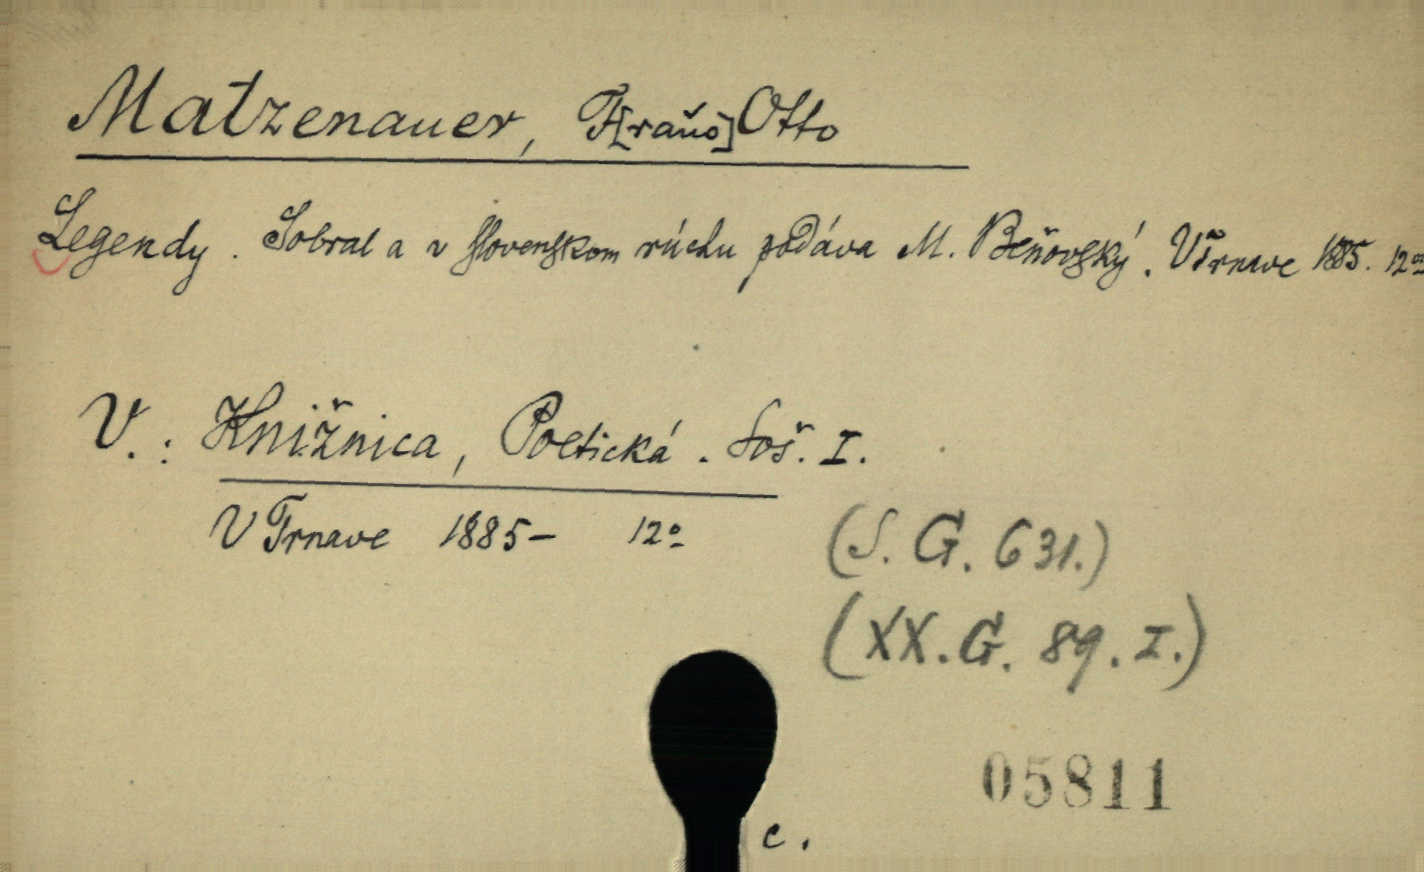 Matzenauer, F[raňo] Otto
Legendy. Sobral a v slovenskom rúchu podáva M. Beňovský. V Trnave 1885. 12°
V.: Knižnica, Poetická. Soš. I.
V Trnave 1885– 12°
(S. G. 631.)
(XX. G. 89. I.)
05811
c.